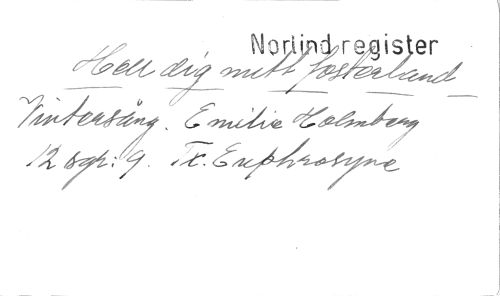 Norlind register
Hell dig mitt fosterland
Vintersång. Emilie Holmberg
12 sgr: 9. Tx. Euphrosyne